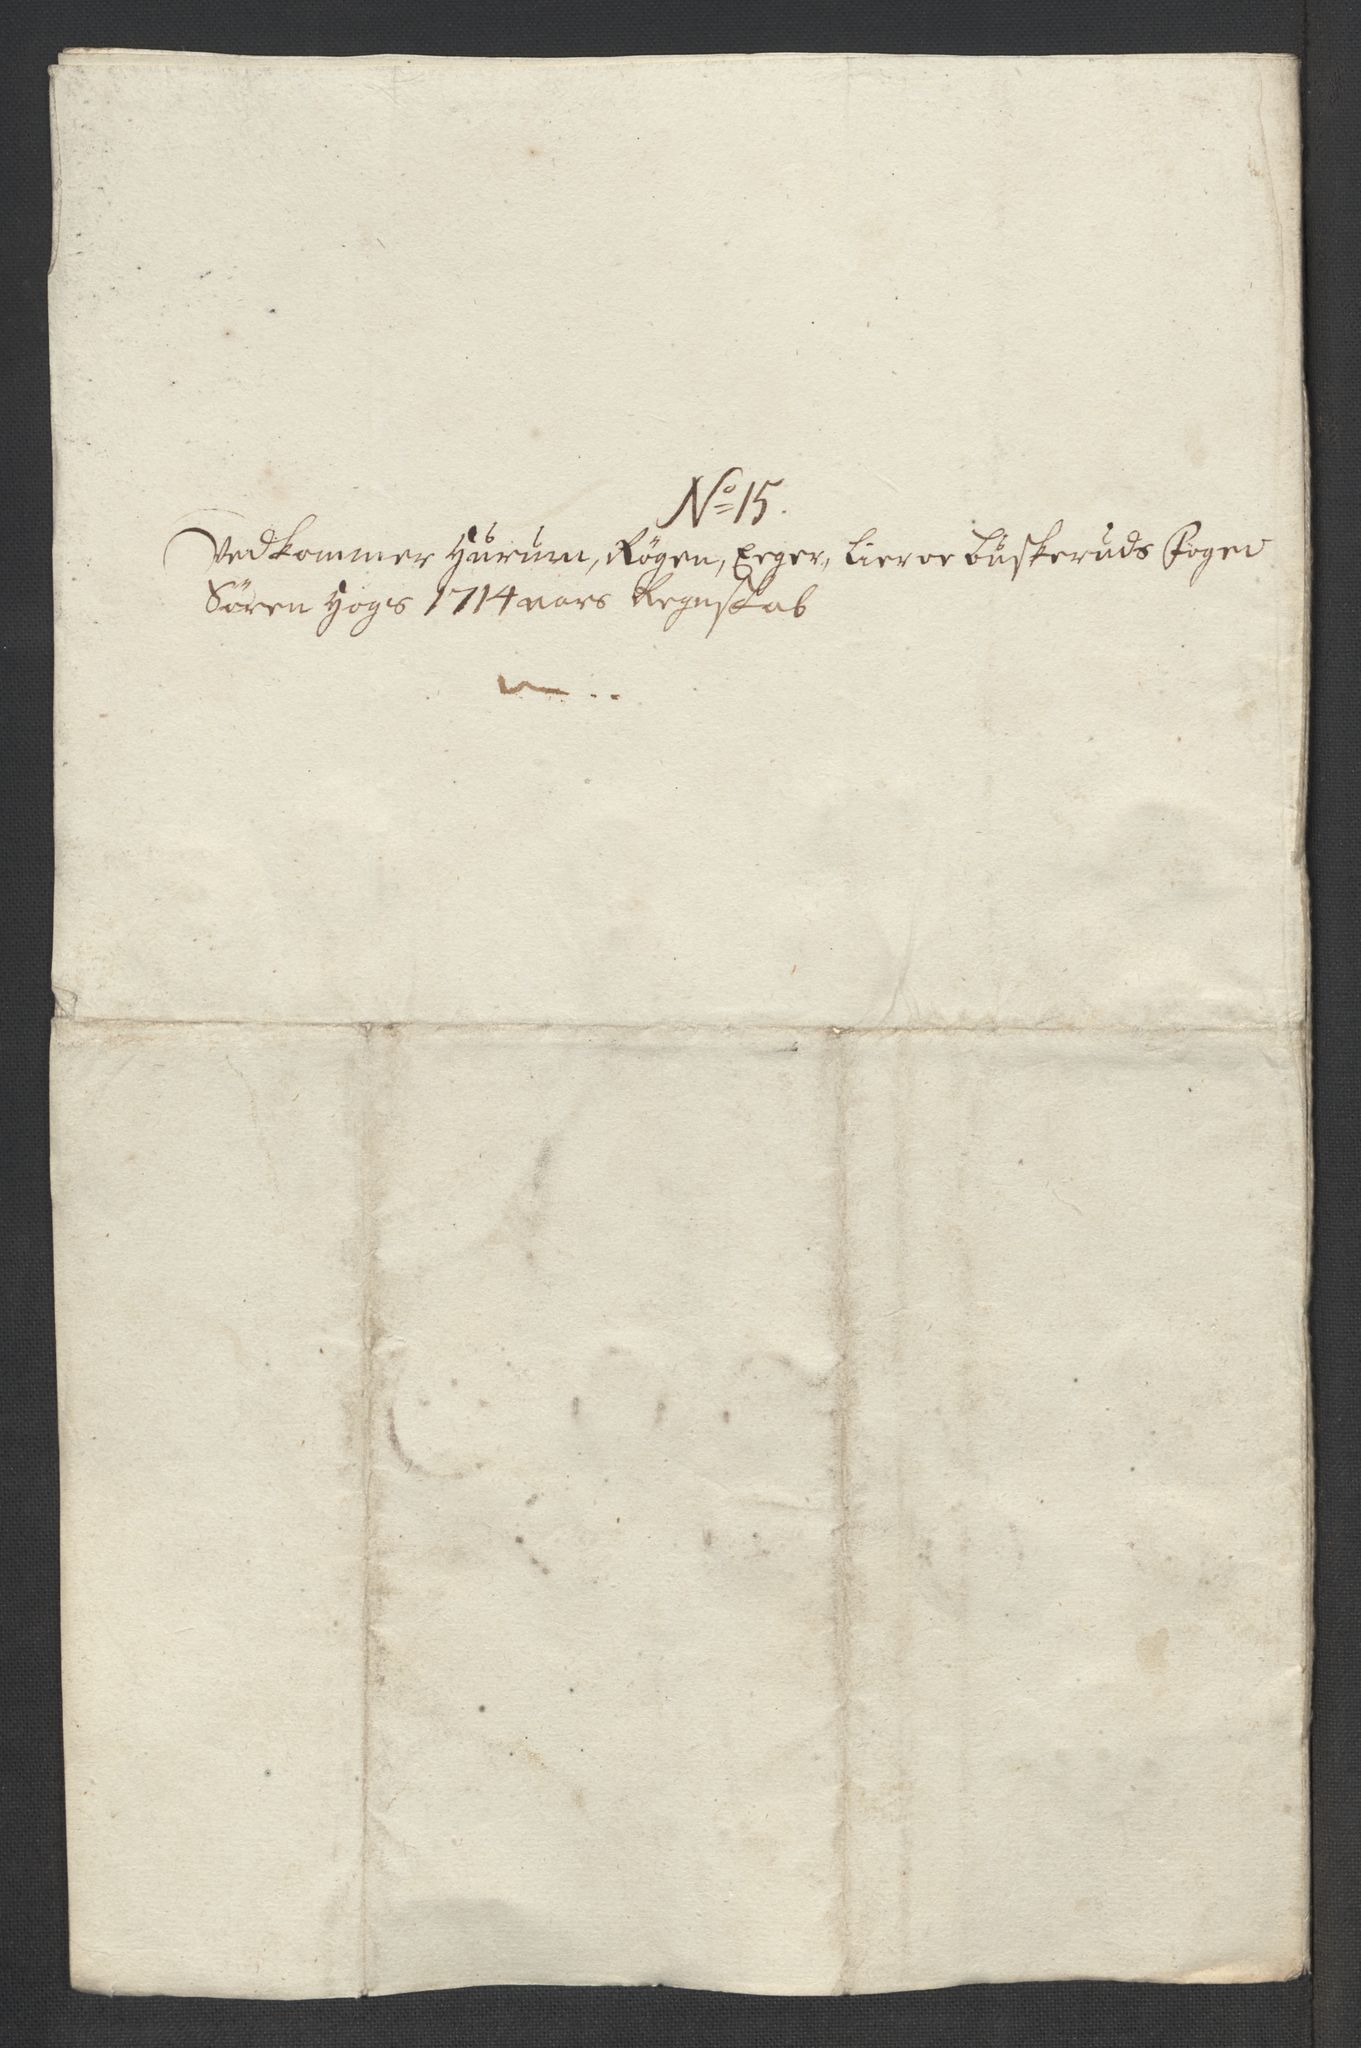 No 15.
Vedkommer Hurum, Røgen, Eeger, Lier oc Buskeruds Foged
Søren Hogs 1714 aars Regnskab